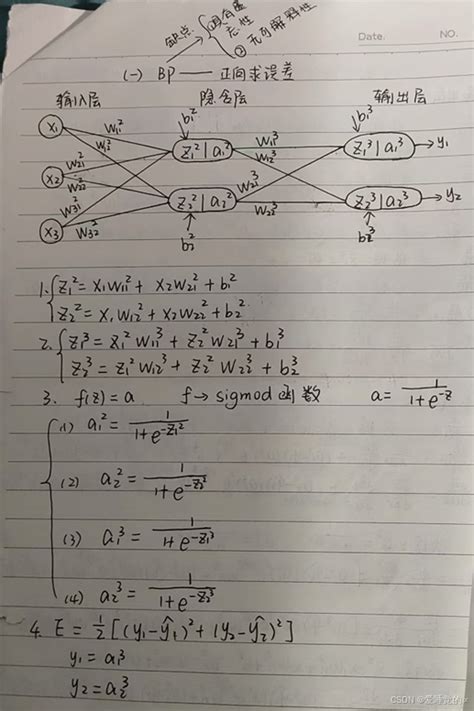 缺点
①
态性
②无可解释性
Date. NO.
(一) BP —— 正向求误差
输入层 隐含层 输出层
b₁² b₁³
x₁ w₁₁² w₁₂² z₁² | a₁² w₁₁³ w₁₂³ z₁³ | a₁³ y₁
x₂ w₂₁² w₂₂² z₂² | a₂² w₂₁³ w₂₂³ z₂³ | a₂³ y₂
x₃ w₃₁² w₃₂²
b₂² b₂³
1. z₁² = x₁w₁₁² + x₂w₂₁² + b₁²
z₂² = x₁w₁₂² + x₂w₂₂² + b₂²
2. z₁³ = z₁² w₁₁³ + z₂² w₂₁³ + b₁³
z₂³ = z₁² w₁₂³ + z₂² w₂₂³ + b₂³
3. f(z) = a f → sigmod 函数 a = 1/(1+e^-z)
(1) a₁² = 1/(1+e^-z₁²)
(2) a₂² = 1/(1+e^-z₂²)
(3) a₁³ = 1/(1+e^-z₁³)
(4) a₂³ = 1/(1+e^-z₂³)
4. E = 1/2 [(y₁-ŷ₁)² + (y₂-ŷ₂)²]
y₁ = a₁³
y₂ = a₂³
CSDN @爱睡觉的